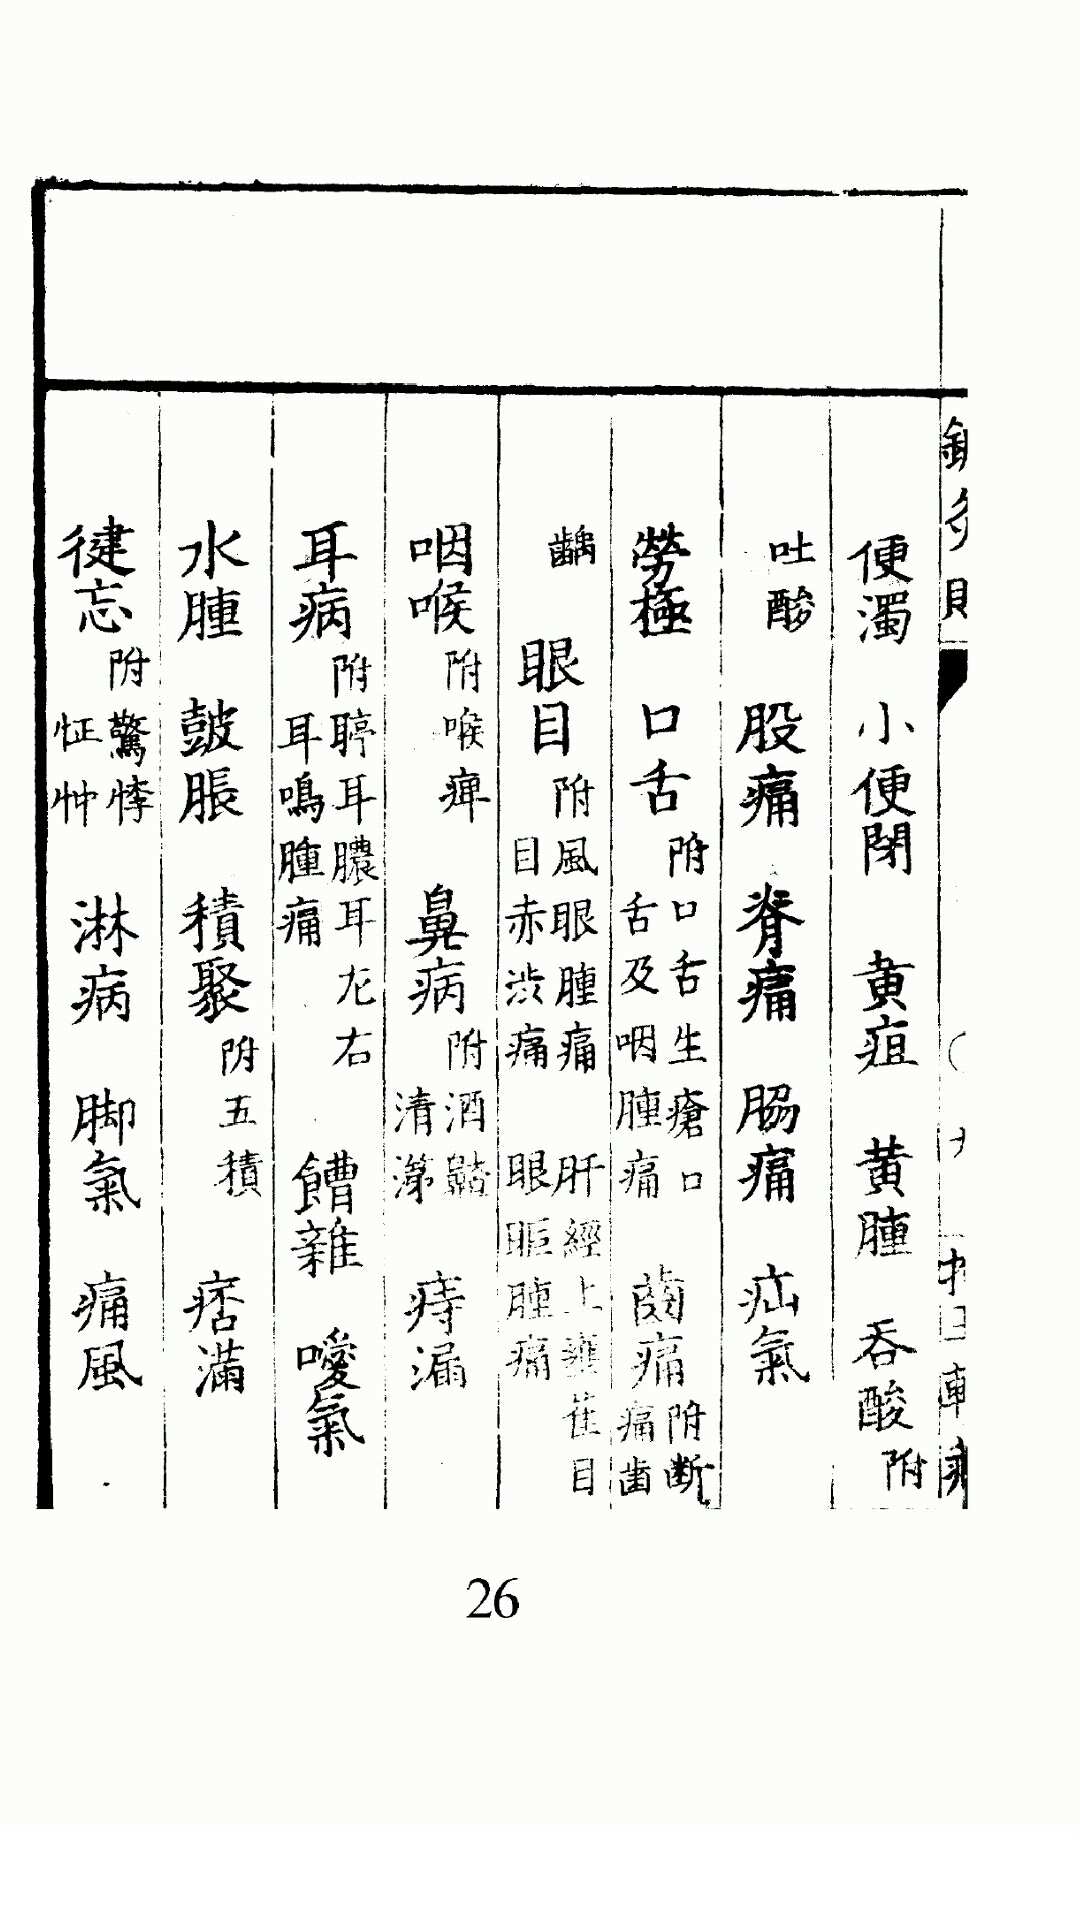 便濁 小便閉 黄疸 黄腫 呑酸 附
吐酸 股痛 脊痛 脇痛 疝氣
勞極 口舌 附口舌生瘡口舌及咽腫痛 齒痛 附断痛歯
齲 眼目 附風眼腫痛目赤渋痛 肝經上壅 目眼眶腫痛
咽喉 附喉痺 鼻病 附酒 清 痔漏
耳病 附聤耳膿耳 右耳鳴腫痛 饎雜 噯氣
水腫 皷脹 積聚 附五積 痞滿
健忘 附驚悸怔忡 淋病 脚氣 痛風
26